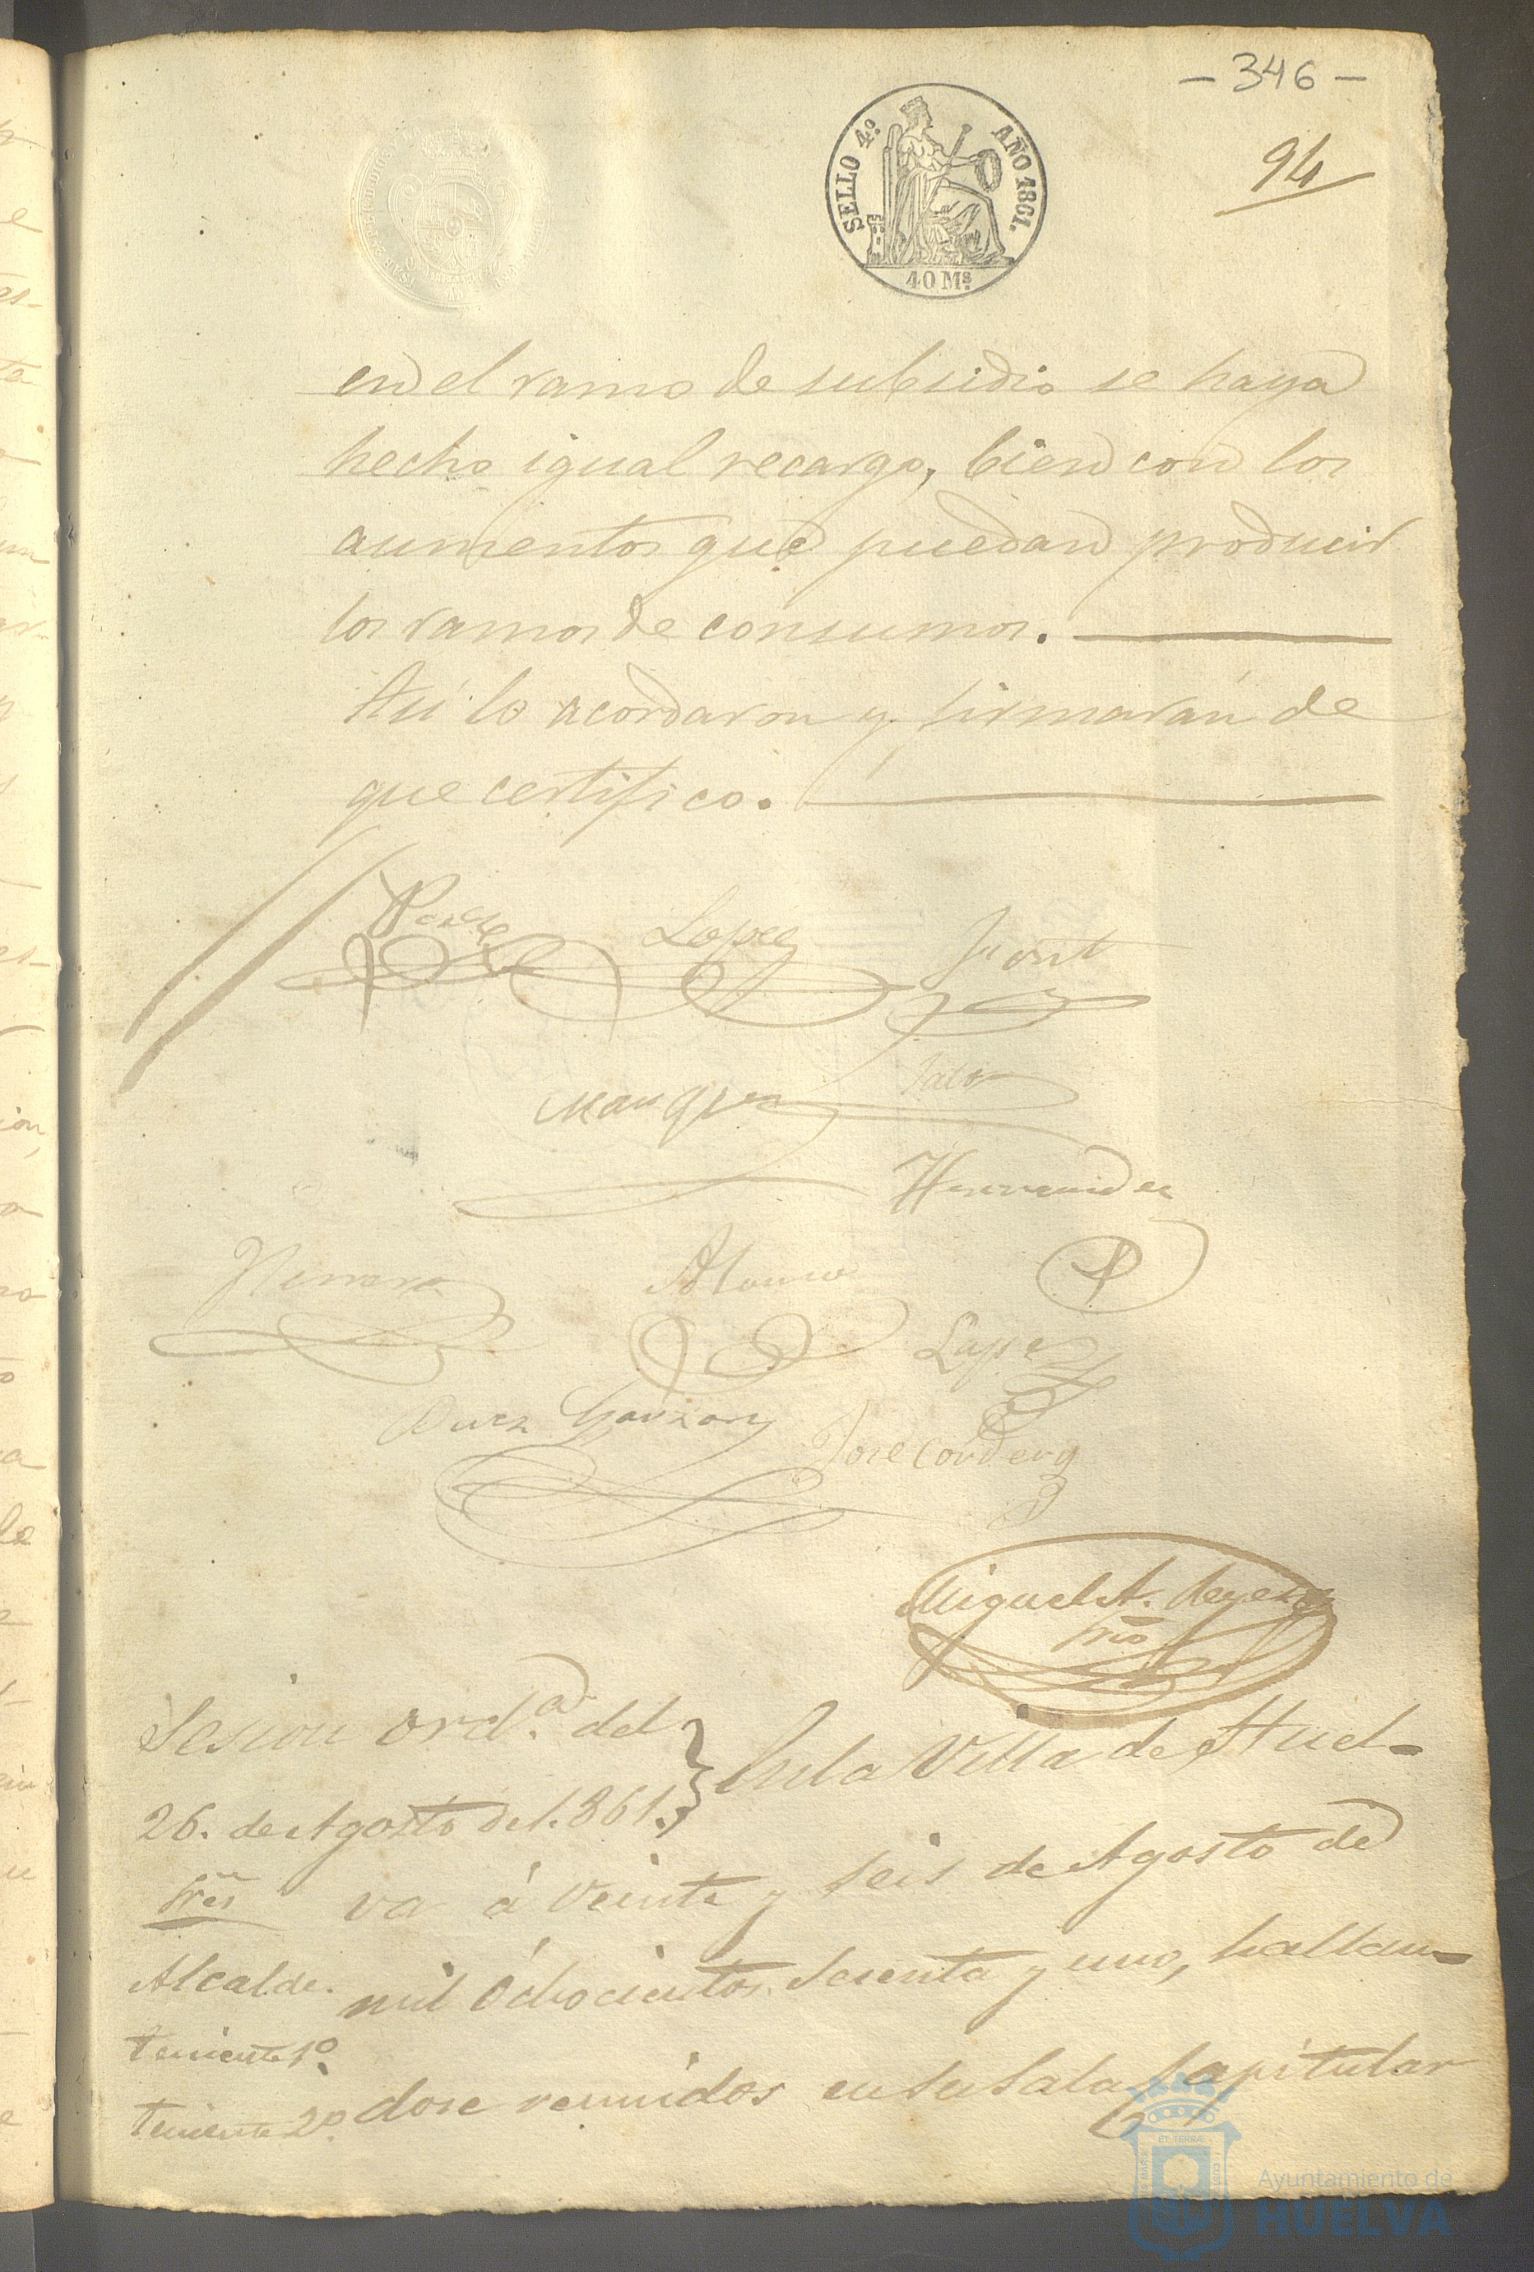 - 346 -
94
SELLO 4º AÑO 1861.
40 Ms.
en el ramo de subsidio se haya
hecho igual recargo, bien con los
aumentos que puedan producir
los ramos de consumos.
Así lo acordaron y firmarán de
que certifico.
Lopez
Font
Marquez
Hernandez
Herrera
Alonso
Lopez
Garzon
Jose Cordero
Miguel A.
Srio
Sesion ordª. del
26. de Agosto del.861.
Sres
Alcalde.
teniente 1º.
teniente 2º.
En la Villa de Huel-
va á veinte y seis de Agosto de
mil óchocientos sesenta y uno, hallan-
dose reunidos en su Sala Capitular
Ayuntamiento de
HUELVA